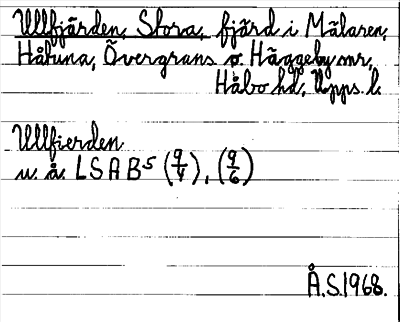 Ullfjärden, Stora, fjärd i Mälaren,
Håtuna, Övergrans o. Häggeby snr,
Håbo hd, Upps. l.
Ullfierden
u. å. LSA B5 (9/4), (9/6)
Å.S.1968.